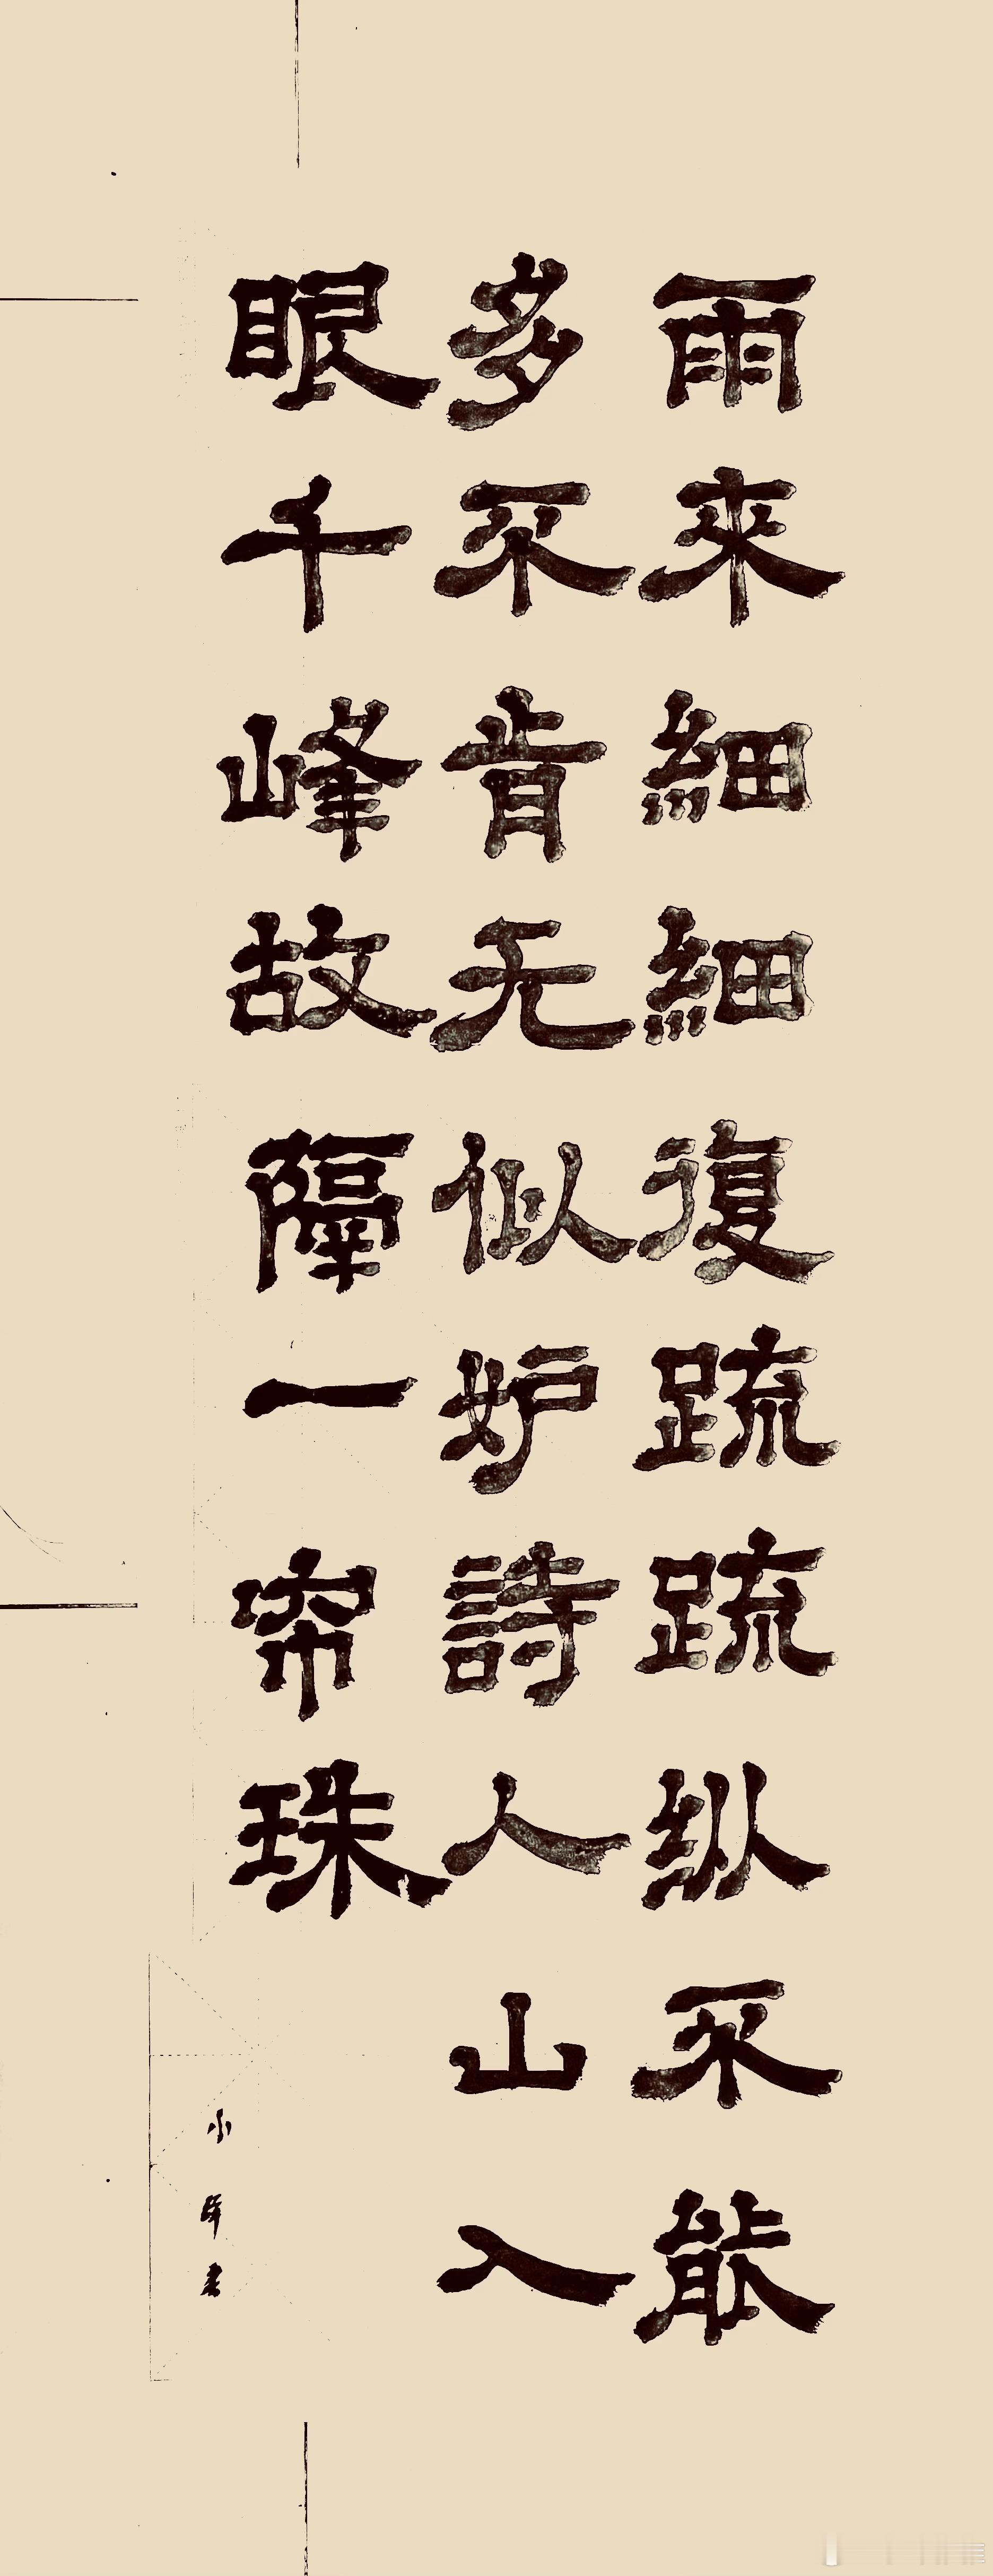 雨来細細復疏疏纵不能
多不肯无似妒詩人山入
眼千峰故隔一帘珠
小
書